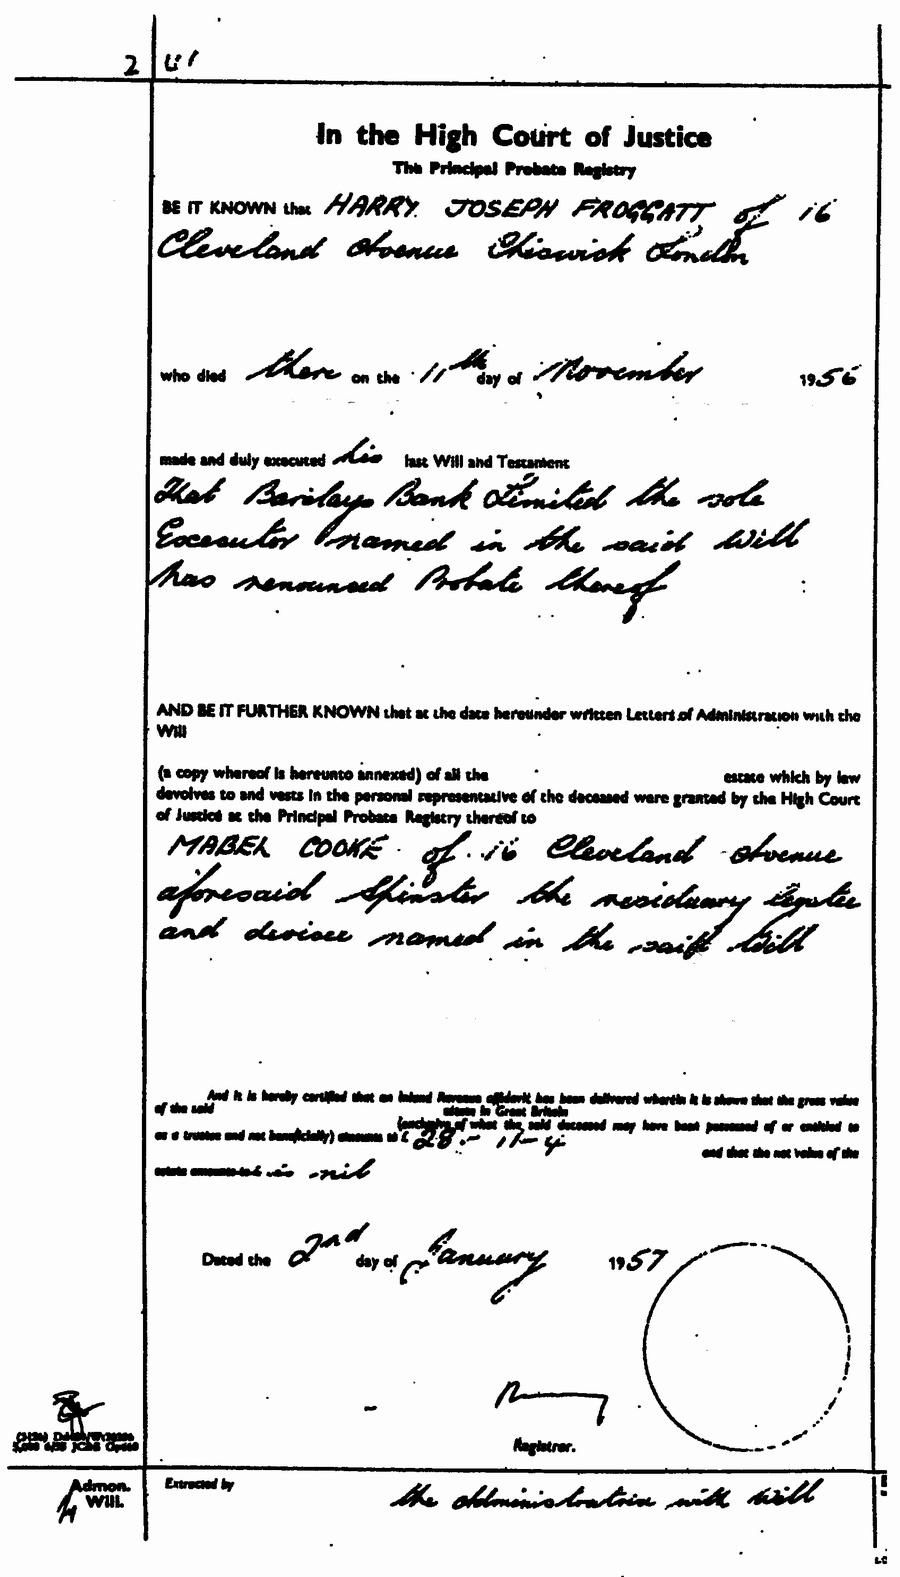 2
In the High Court of Justice
The Principal Probate Registry
BE IT KNOWN that HARRY JOSEPH FROGGATT of 16
Cleveland Avenue Chiswick London
who died there on the 11th day of November 1956
made and duly executed his last Will and Testament
That Barclays Bank Limited the sole
Executor named in the said Will
has renounced Probate thereof
AND BE IT FURTHER KNOWN that at the date hereunder written Letters of Administration with the
Will
(a copy whereof is hereunto annexed) of all the estate which by law
devolves to and vests in the personal representative of the deceased were granted by the High Court
of Justice at the Principal Probate Registry thereof to
MABEL COOKE of 16 Cleveland Avenue
aforesaid Spinster the residuary legatee
and devisee named in the said Will
And it is hereby certified that an Inland Revenue affidavit has been delivered wherein it is shown that the gross value
of the said estate in Great Britain
(exclusive of what the said deceased may have been possessed of or entitled to
as a trustee and not beneficially) amounts to £ 28 - 11 - 4 and that the net value of the
estate amounts to £ is nil
Dated the 2nd day of January 1957
Registrar.
Admon.
Will.
Extracted by the administratrix with Will